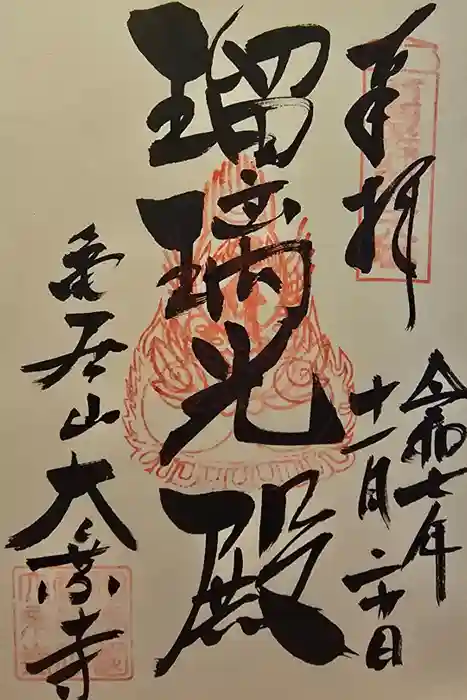 奉拝
令和七年
十一月二十日
瑠璃光殿
亀居山大願寺